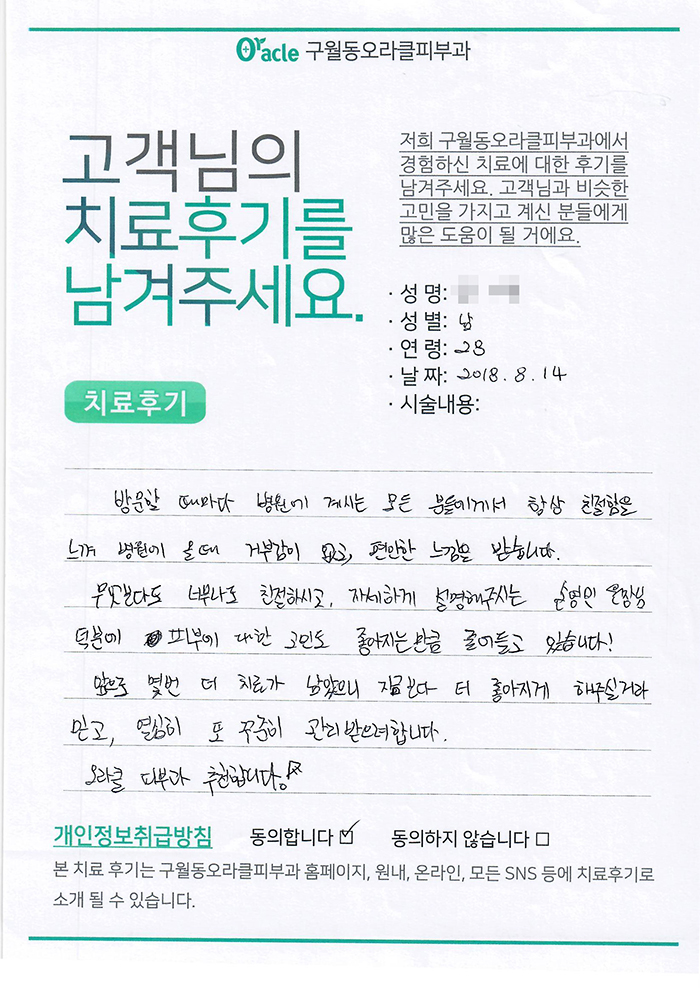 Oracle 구월동오라클피부과
고객님의
치료후기를
남겨주세요.
저희 구월동오라클피부과에서
경험하신 치료에 대한 후기를
남겨주세요. 고객님과 비슷한
고민을 가지고 계신 분들에게
많은 도움이 될 거에요.
· 성 명:
· 성 별: 남
· 연 령: 28
· 날 짜: 2018. 8. 14
· 시술내용:
치료후기
방문할 때마다 병원에 계시는 모든 분들에게서 항상 친절함을
느껴 병원에 올때 거부감이 없고, 편안한 느낌을 받습니다.
무엇보다도 너무나도 친절하시고, 자세하게 설명해주시는 원장님
덕분에 피부에 대한 고민도 좋아지는만큼 줄어들고 있습니다!
앞으로 몇번 더 치료가 남았으니 지금보다 더 좋아지게 해주실거라
믿고, 열심히 또 꾸준히 관리받으려합니다.
오라클 피부과 추천합니다!
개인정보취급방침 동의합니다 ☑ 동의하지 않습니다 □
본 치료 후기는 구월동오라클피부과 홈페이지, 원내, 온라인, 모든 SNS 등에 치료후기로
소개 될 수 있습니다.